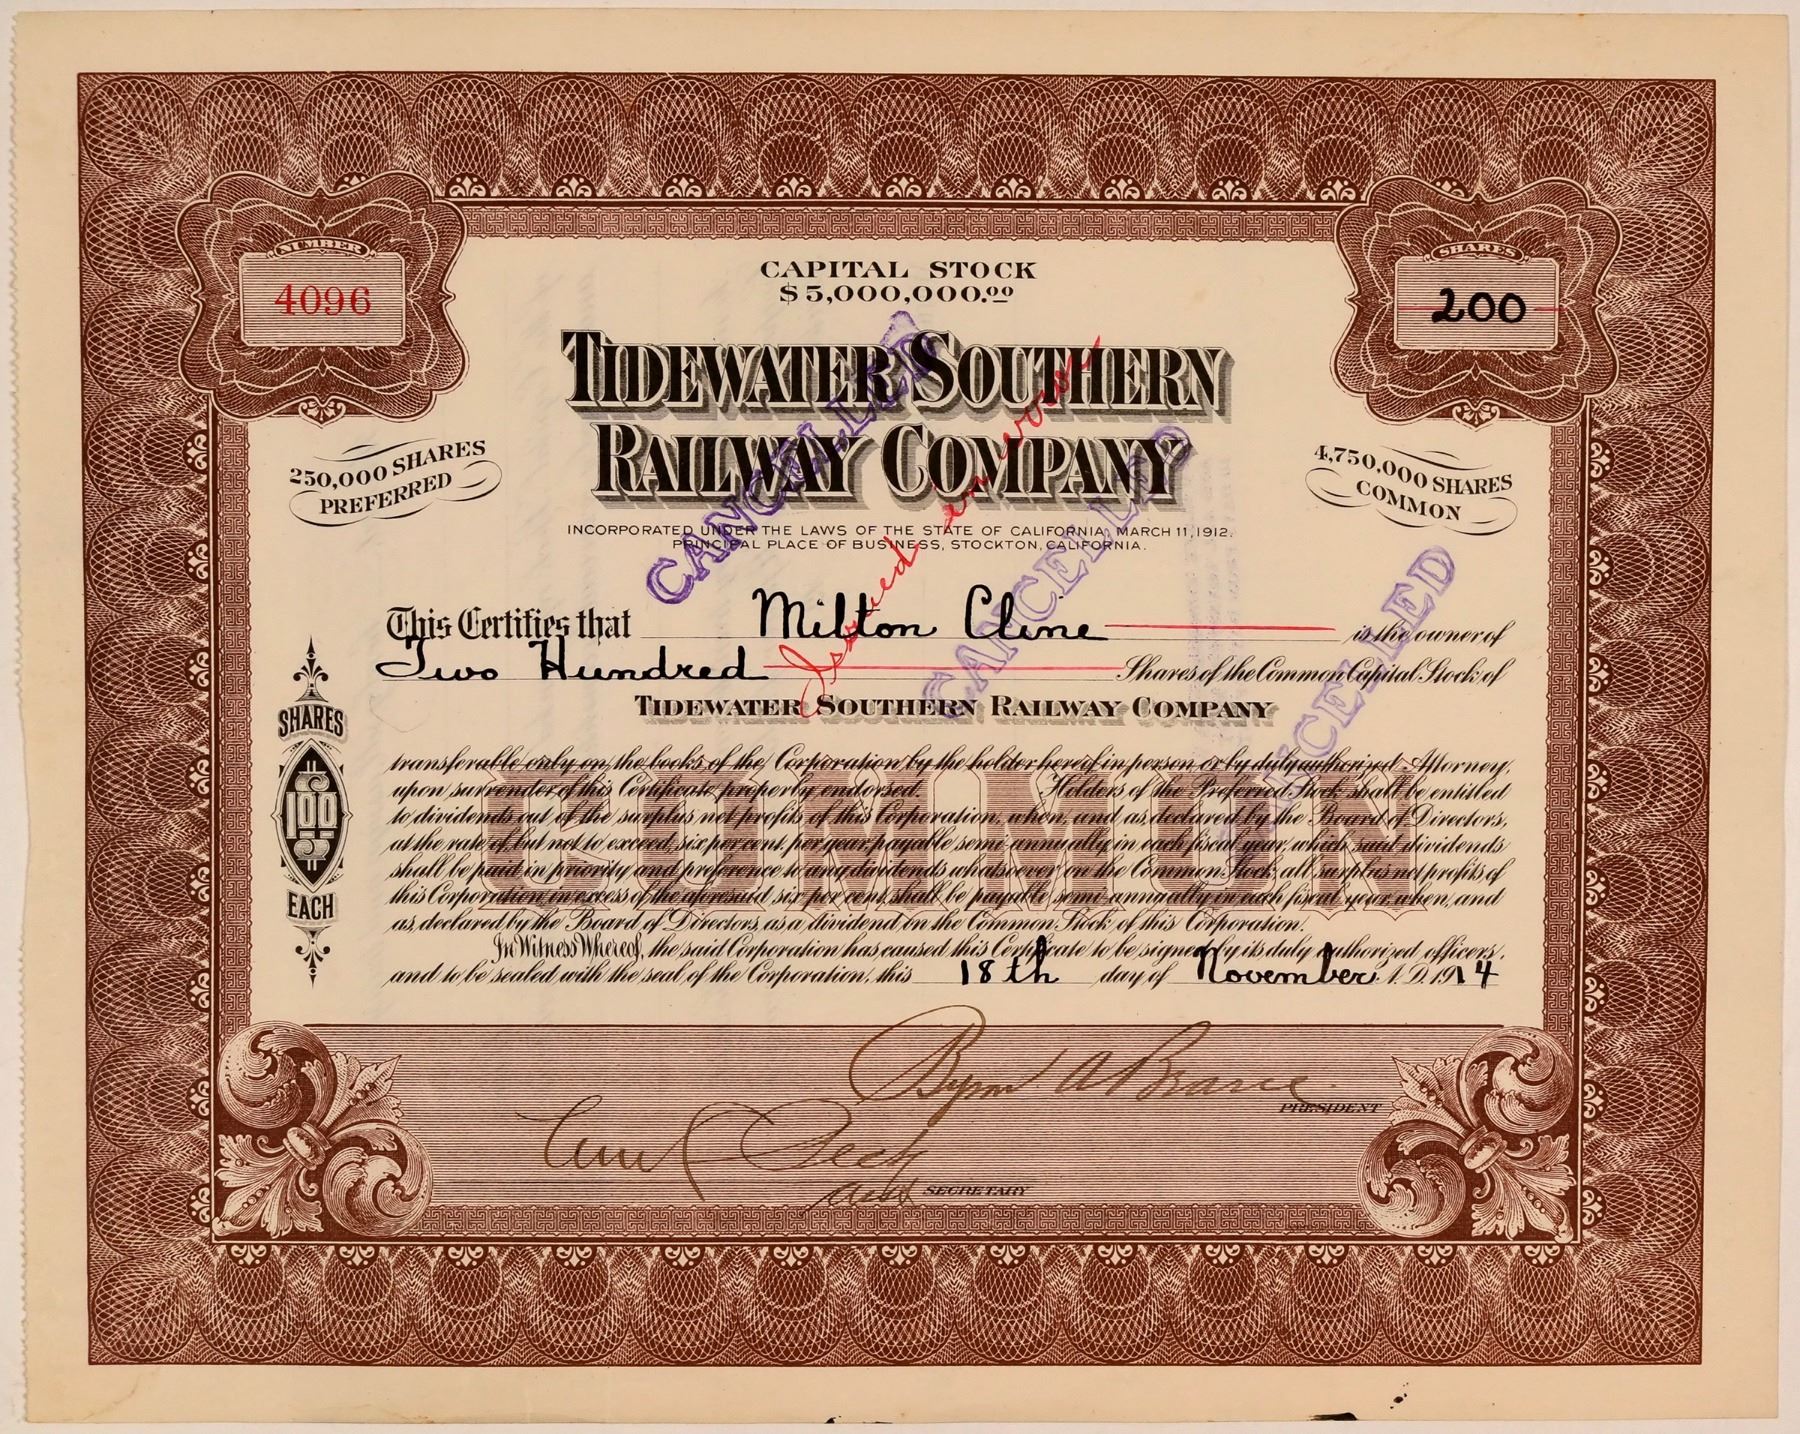 NUMBER
4096
SHARES
200
CAPITAL STOCK
$5,000,000.00
TIDEWATER SOUTHERN
RAILWAY COMPANY
250,000 SHARES
PREFERRED
4,750,000 SHARES
COMMON
INCORPORATED UNDER THE LAWS OF THE STATE OF CALIFORNIA, MARCH 11, 1912.
PRINCIPAL PLACE OF BUSINESS, STOCKTON, CALIFORNIA.
CANCELLED
Issued in error
CANCELLED
CANCELLED
This Certifies that Milton Cline is the owner of
Two Hundred Shares of the Common Capital Stock of
TIDEWATER SOUTHERN RAILWAY COMPANY
SHARES
$100$
EACH
COMMON
transferable only on the books of the Corporation by the holder hereof in person or by duly authorized Attorney,
upon surrender of this Certificate properly endorsed. Holders of the Preferred Stock shall be entitled
to dividends out of the surplus net profits of this Corporation, when, and as, declared by the Board of Directors,
at the rate of, but not to exceed, six per cent. per year, payable semi-annually in each fiscal year, which said dividends
shall be paid in priority and preference to any dividends whatsoever on the Common Stock; all surplus net profits of
this Corporation in excess of the aforesaid six per cent. shall be payable semi-annually in each fiscal year, when, and
as, declared by the Board of Directors, as a dividend on the Common Stock of this Corporation.
In Witness Whereof, the said Corporation has caused this Certificate to be signed by its duly authorized officers,
and to be sealed with the seal of the Corporation, this 18th day of November A.D. 1914
Byron A Bearce
PRESIDENT
Peck
SECRETARY